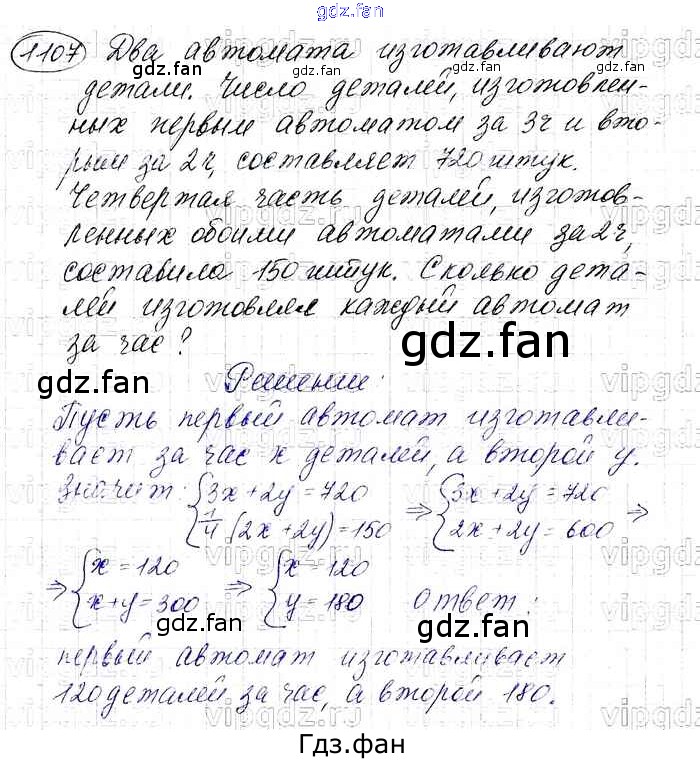 gdz.fan
1107 Два автомата изготавливают
детали. Число деталей, изготовлен-
ных первым автоматом за 3ч и вто-
рым за 2ч, составляет 720 штук.
Четвертая часть деталей, изготов-
ленных обоими автоматами за 2ч,
составила 150 штук. Сколько дета-
лей изготовлял каждый автомат
за час?
Решение:
Пусть первый автомат изготавли-
вает за час x деталей, а второй y.
Значит: {3x + 2y = 720 ⇒ {3x + 2y = 720 ⇒
{1/4 (2x + 2y) = 150 {2x + 2y = 600
⇒ {x = 120 ⇒ {x = 120
{x + y = 300 {y = 180 Ответ:
первый автомат изготавливает
120 деталей за час, а второй 180.
Гдз.фан